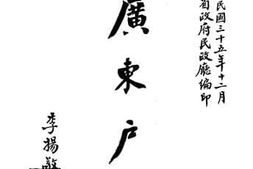 民國三十五年十二月
省政府民政廳編印
廣東户
李揚敬